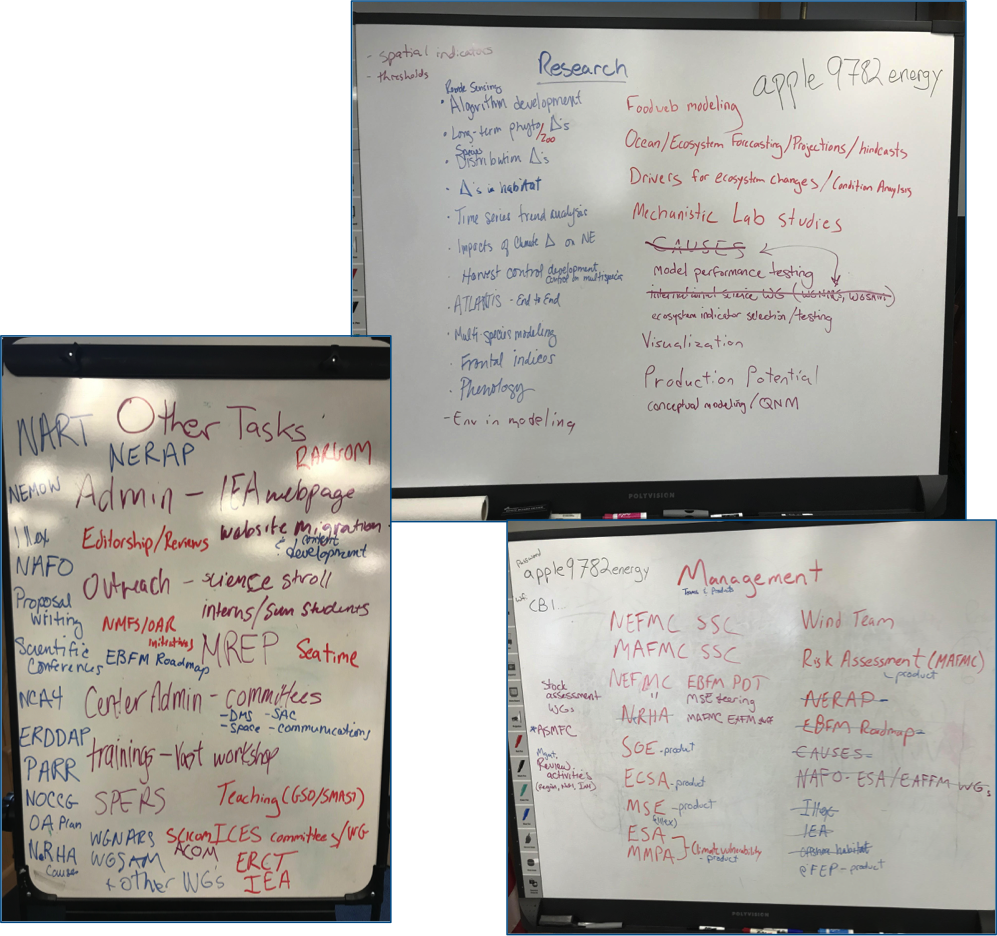 - spatial indicators
- thresholds
Research
apple 9782 energy
Remote Sensing
• Algorithm development
• Long-term phyto/zoo Δ's
Species
• Distribution Δ's
• Δ's in habitat
• Time series trend analysis
• Impacts of Climate Δ on NE
• Harvest control development
control in multispecies
• ATLANTIS - End to End
• Multi-species modeling
• Frontal indices
• Phenology
- Env in modeling
Foodweb modeling
Ocean/Ecosystem Forecasting/Projections/hindcasts
Drivers for ecosystem changes/Condition Analysis
Mechanistic Lab studies
CAUSES
Model performance testing
international science WG (WGNARS, WGSAM)
ecosystem indicator selection/testing
Visualization
Production Potential
conceptual modeling/QNM
POLYVISION
Other Tasks
NART
NERAP
RARGOM
NEMOW
Admin - IEA webpage
Illex
Editorship/Reviews
website migration
& content
development
NAFO
Outreach - science stroll
Proposal
Writing
interns/sum students
NMFS/OAR
initiatives
Scientific
Conferences
EBFM Roadmap
MREP
Sea time
NCA4
Center Admin - committees
- DMS - SAC
- Space - communications
ERDDAP
trainings - Vast workshop
PARR
NOCCG
SPERS
Teaching (GSO/SMAST)
OA Plan
WGNARS
SCICOM
ICES committees/WG
ACOM
NRHA
WGSAM
ERCT
+ other WGs
IEA
password
apple9782energy
CB1
Management
Teams & products
NEFMC SSC
MAFMC SSC
NEFMC EBFM PDT
" MSE steering
NRHA
Stock
assessment
WGs
*ASMFC
Mgmt.
Review
activities
SOE - product
ECSA - product
MSE - product
(Illex)
ESA
MMPA
Climate vulnerability
- product
Wind Team
Risk Assessment (MAFMC)
product
NERAP
EBFM Roadmap
CAUSES
NAFO - ESA/EAFFM WGs
Illex
IEA
offshore habitat
eFEP - product
POLYVISION